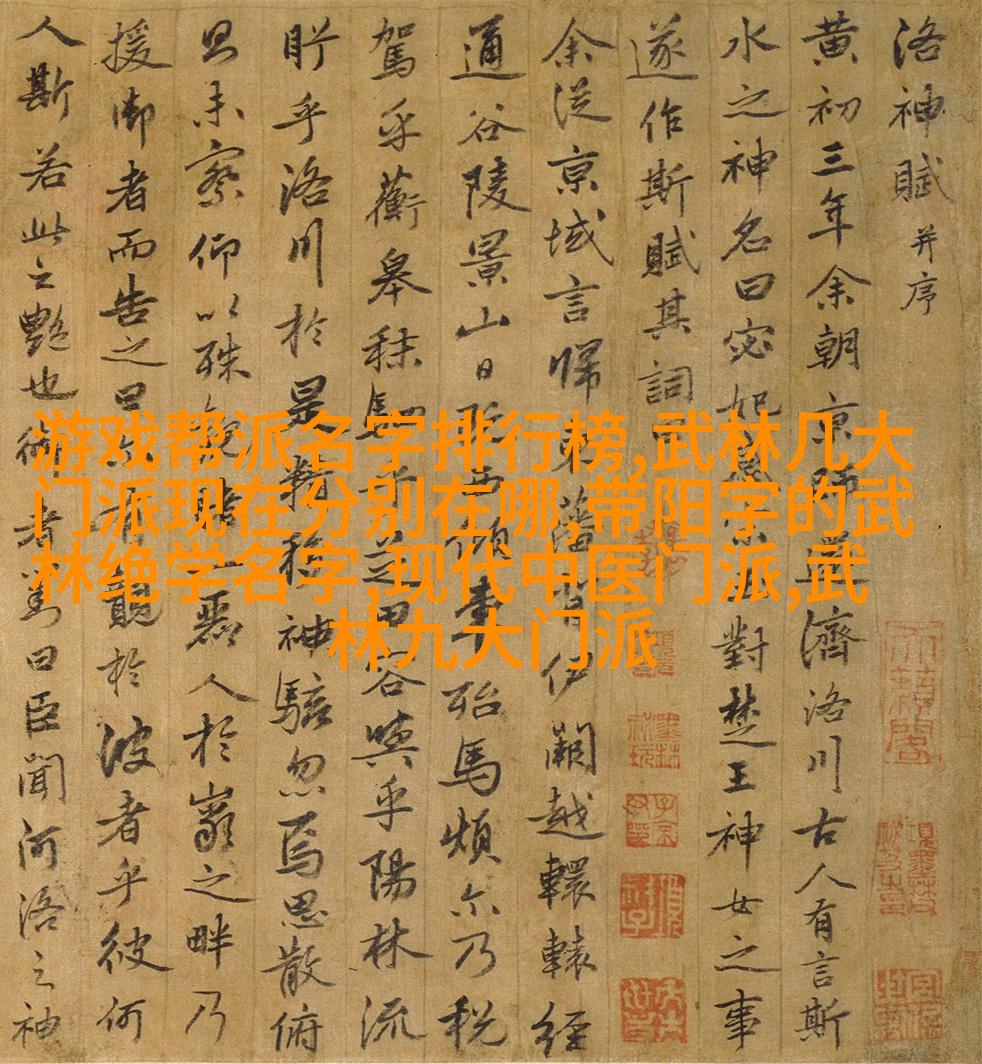 洛神賦并序
黄初三年余朝京師還濟洛川古人有言斯
水之神名曰宓妃感宋玉對楚王神女之事
遂作斯賦其詞曰
余從京域言歸東藩背伊闕越轘轅經
通谷陵景山日既西傾車殆馬煩尒乃税
駕乎蘅皋秣駟乎芝田容與乎陽林流
眄乎洛川於是精移神駭忽焉思散俯
則未察仰以殊觀睹一麗人於巖之畔乃
援御者而告之曰爾有覿於彼者乎彼何
人斯若此之艷也御者對曰臣聞河洛之神
游戏帮派名字排行榜,武林几大
门派现在分别在哪,带阳字的武
林绝学名字,现代中医门派,武
林九大门派